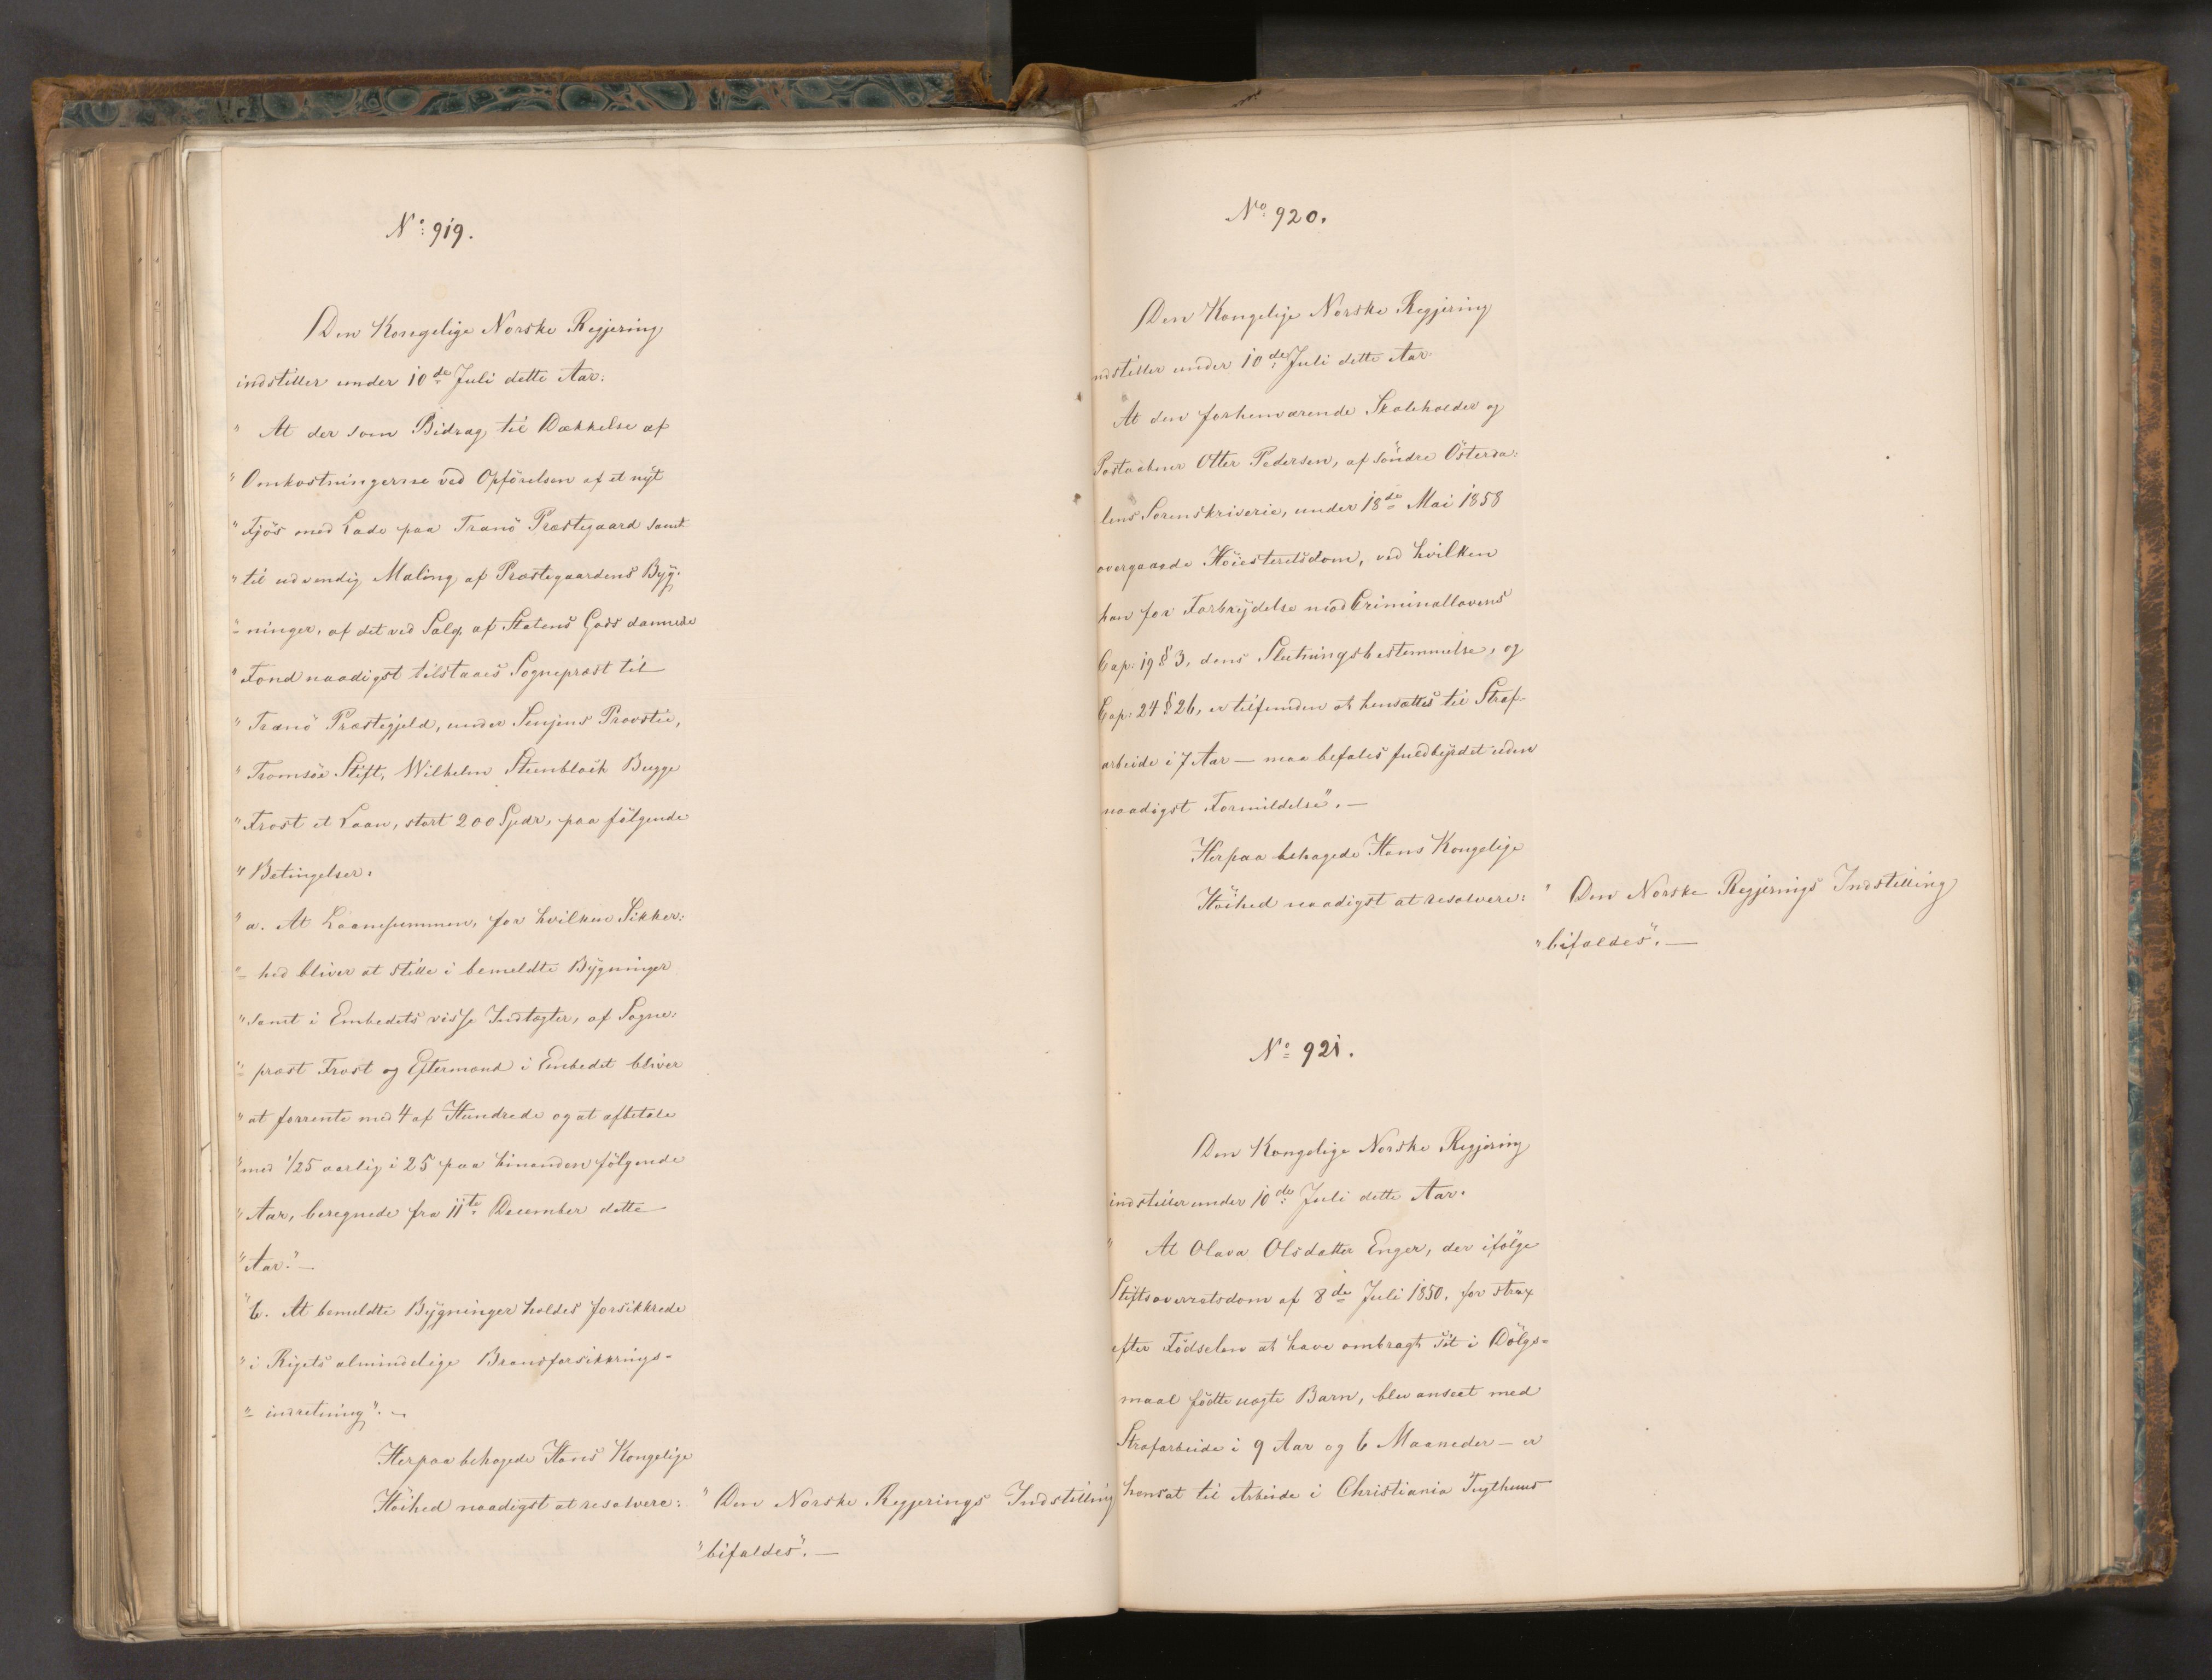 No: 919.
Den Kongelige Norske Regjering
indstiller under 10de Juli dette Aar:
" At der som Bidrag til Dækkelse af
" Omkostningerne ved Opförelsen af et nyt
" Fjös med Lade paa Tranö Præstegaard samt
" til udvendig Maling af Præstegaardens Byg-
"- ninger, af det ved Salg af Statens Gods dannede
" Fond naadigst tilstaaes Sognepræst til
" Tranö Præstegjeld, under Senjens Provstie,
" Tromsöe Stift, Wilhelm Steenbloch Bugge
" Frost et Laan, stort 200 Spdr, paa fölgende
" Betingelser:
" a. At Laanesummen, for hvilken Sikker-
"- hed bliver at stille i bemeldte Bygninger
" samt i Embedets visse Indtægter, af Sogne-
"- præst Frost og Eftermænd i Embedet bliver
" at forrente med 4 af Hundrede og at afbetale
" med 1/25 aarlig i 25 paa hinanden fölgende
" Aar, beregnede fra 11te December dette
" Aar." —
" b. At bemeldte Bygninger holdes forsikkrede
" i Rigets almindelige Brandforsikkrings-
"- indretning". —
Herpaa behagede Hans Kongelige
Höihed naadigst at resolvere: " Den Norske Regjerings Indstilling
" bifaldes". —
No 920.
Den Kongelige Norske Regjering
indstiller under 10de Juli dette Aar:
At den forhenværende Skoleholder og
Postaabner Otter Pedersen, af söndre Österda-
lens Sorenskriverie, under 18de Mai 1858
overgaaede Höiesteretsdom, ved hvilken
han for Forbrydelse mod Criminallovens
Cap: 19 § 3, dens Slutningsbestemmelse, og
Cap: 24 § 26, er tilfunden at hensættes til Straf-
arbeide i 7 Aar — maa befales fuldbyrdet uden
naadigst Formildelse". —
Herpaa behagede Hans Kongelige
Höihed naadigst at resolvere: " Den Norske Regjerings Indstilling
" bifaldes". —
No 921.
Den Kongelige Norske Regjering
indstiller under 10de Juli dette Aar:
" At Olava Olsdatter Enger, der ifölge
Stiftsoverretsdom af 8de Juli 1850, for strax
efter Födselen at have ombragt sit i Dölgs-
maal födte uægte Barn, blev anseet med
Strafarbeide i 9 Aar og 6 Maaneder — er
hensat til Arbeide i Christiania Tugthuus